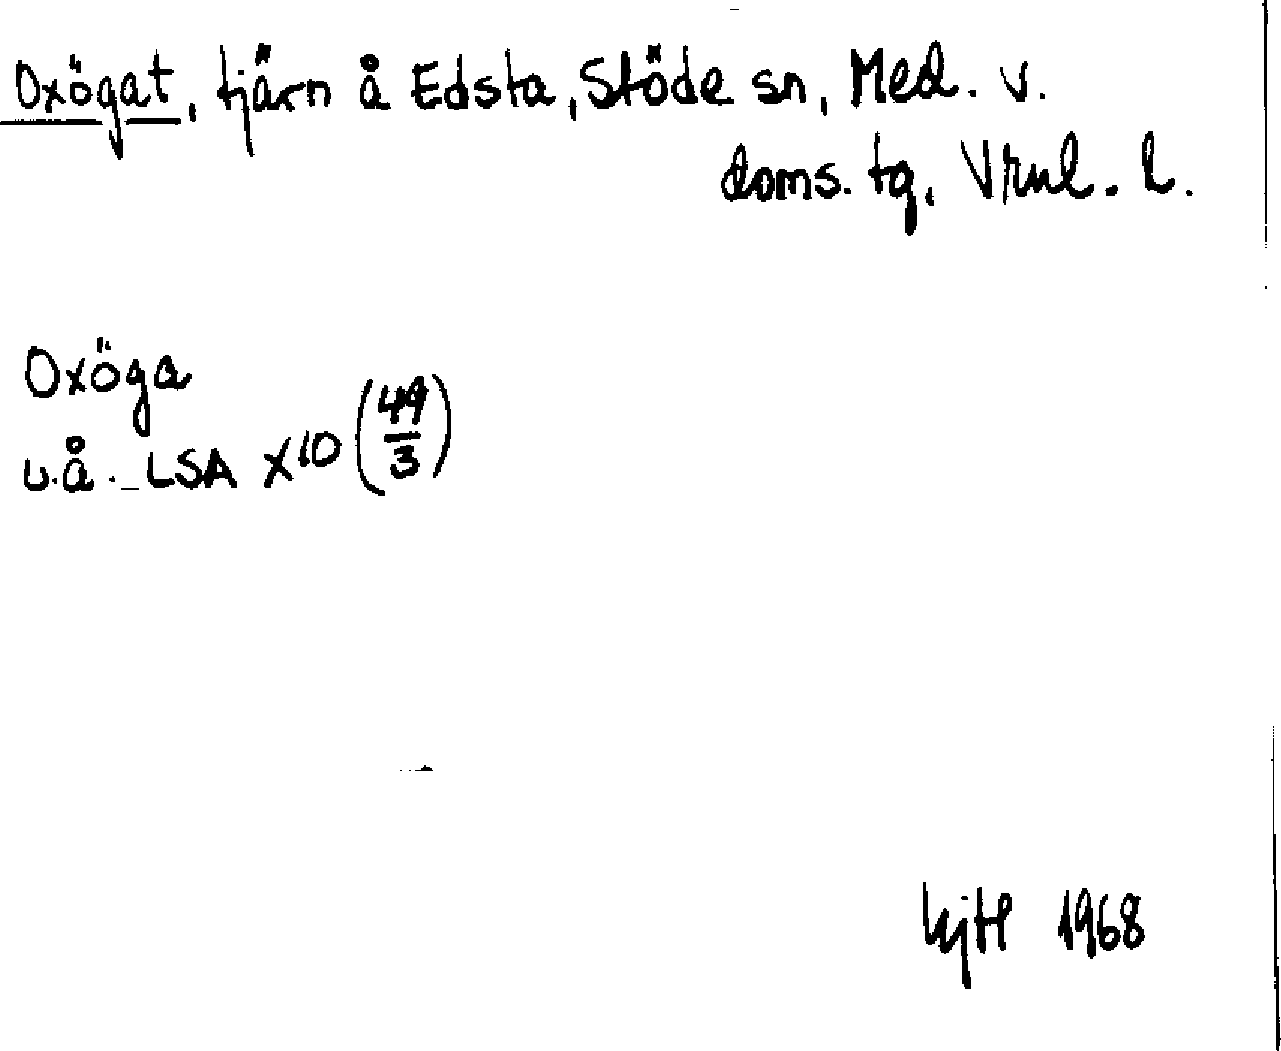 Oxögat, tjärn å Edsta, Stöde sn, Med. v.
doms. tg, Vrnl. l.
Oxöga
u.å. LSA X10 (49/3)
1968